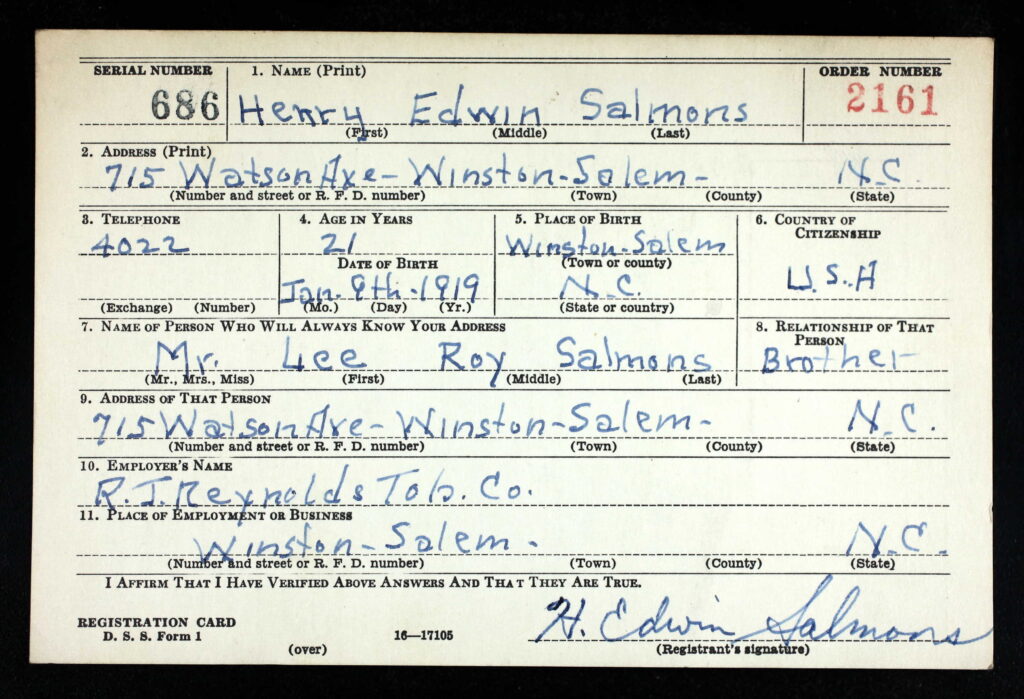 SERIAL NUMBER 1. NAME (Print) ORDER NUMBER
686 Henry Edwin Salmons 2161
(First) (Middle) (Last)
2. ADDRESS (Print)
715 Watson Ave - Winston-Salem - N.C
(Number and street or R. F. D. number) (Town) (County) (State)
3. TELEPHONE 4. AGE IN YEARS 5. PLACE OF BIRTH 6. COUNTRY OF CITIZENSHIP
4022 21 Winston-Salem
DATE OF BIRTH (Town or county)
Jan. 9th-1919 N.C. U.S.A
(Exchange) (Number) (Mo.) (Day) (Yr.) (State or country)
7. NAME OF PERSON WHO WILL ALWAYS KNOW YOUR ADDRESS 8. RELATIONSHIP OF THAT PERSON
Mr. Lee Roy Salmons Brother
(Mr., Mrs., Miss) (First) (Middle) (Last)
9. ADDRESS OF THAT PERSON
715 Watson Ave - Winston-Salem - N.C.
(Number and street or R. F. D. number) (Town) (County) (State)
10. EMPLOYER'S NAME
R.J. Reynolds Tob. Co.
11. PLACE OF EMPLOYMENT OR BUSINESS
Winston-Salem - N.C.
(Number and street or R. F. D. number) (Town) (County) (State)
I AFFIRM THAT I HAVE VERIFIED ABOVE ANSWERS AND THAT THEY ARE TRUE.
REGISTRATION CARD
D. S. S. Form 1 16—17105 H. Edwin Salmons
(over) (Registrant's signature)